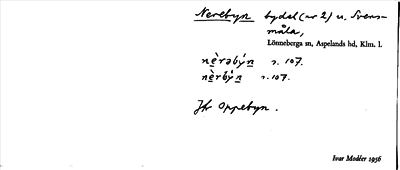 Nerebyn bydel (nr 2) u. Svens-
måla,
Lönneberga sn, Aspelands hd, Klm. l.
nè̱rəbýn̠ s. 107.
nè̱rbýn̠ s. 107.
Jfr Oppebyn.
Ivar Modéer 1936